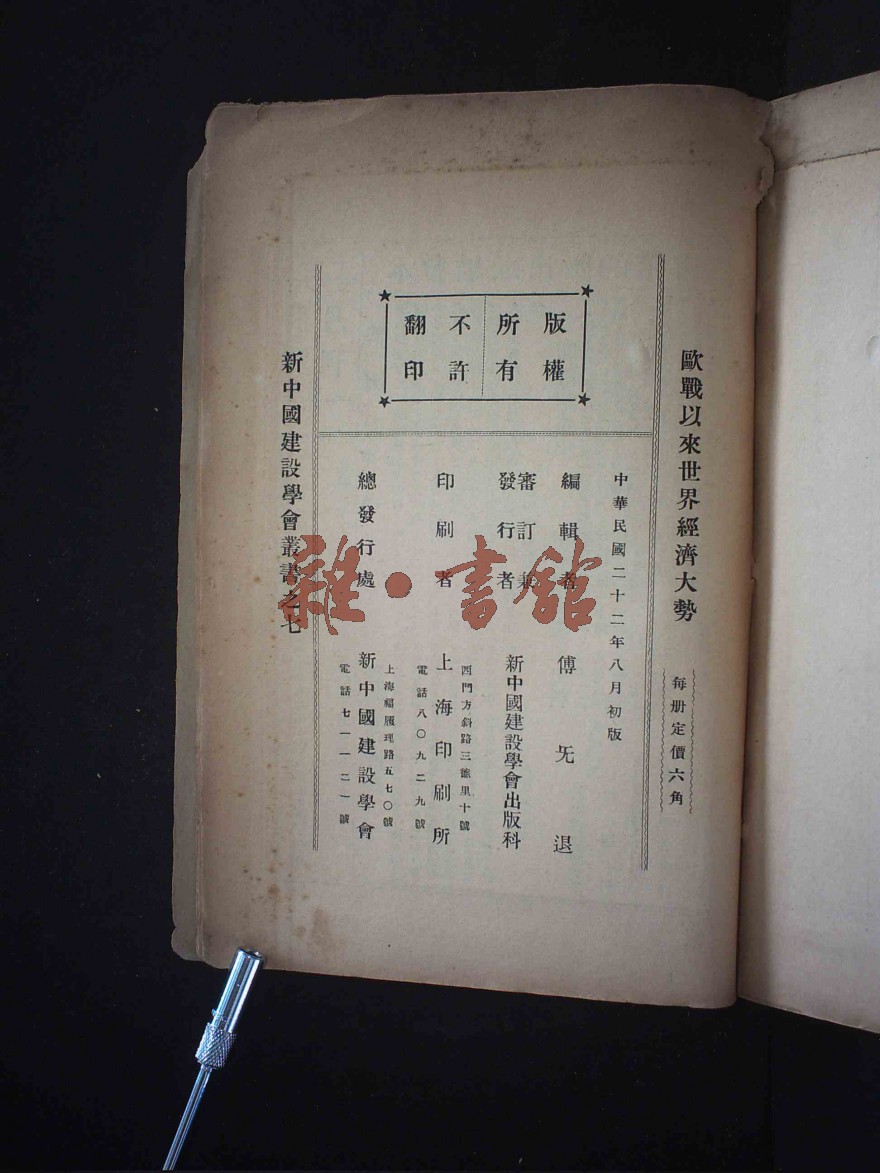 歐戰以來世界經濟大勢
每册定價六角
版權
所有
不許
翻印
中華民國二十二年八月初版
編輯者 傅旡退
審訂兼
發行者 新中國建設學會出版科
印刷者 上海印刷所
西門方斜路三德里十號
電話八〇九二九號
總發行處 新中國建設學會
上海福履理路五七〇號
電話七一一二一號
新中國建設學會叢書之七
雜·書館